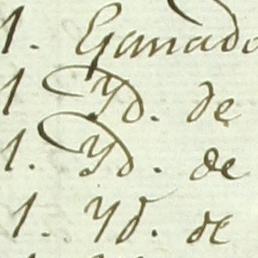 1. Ganado
1 Yd. de
1. Yd. de
1. Yd. de